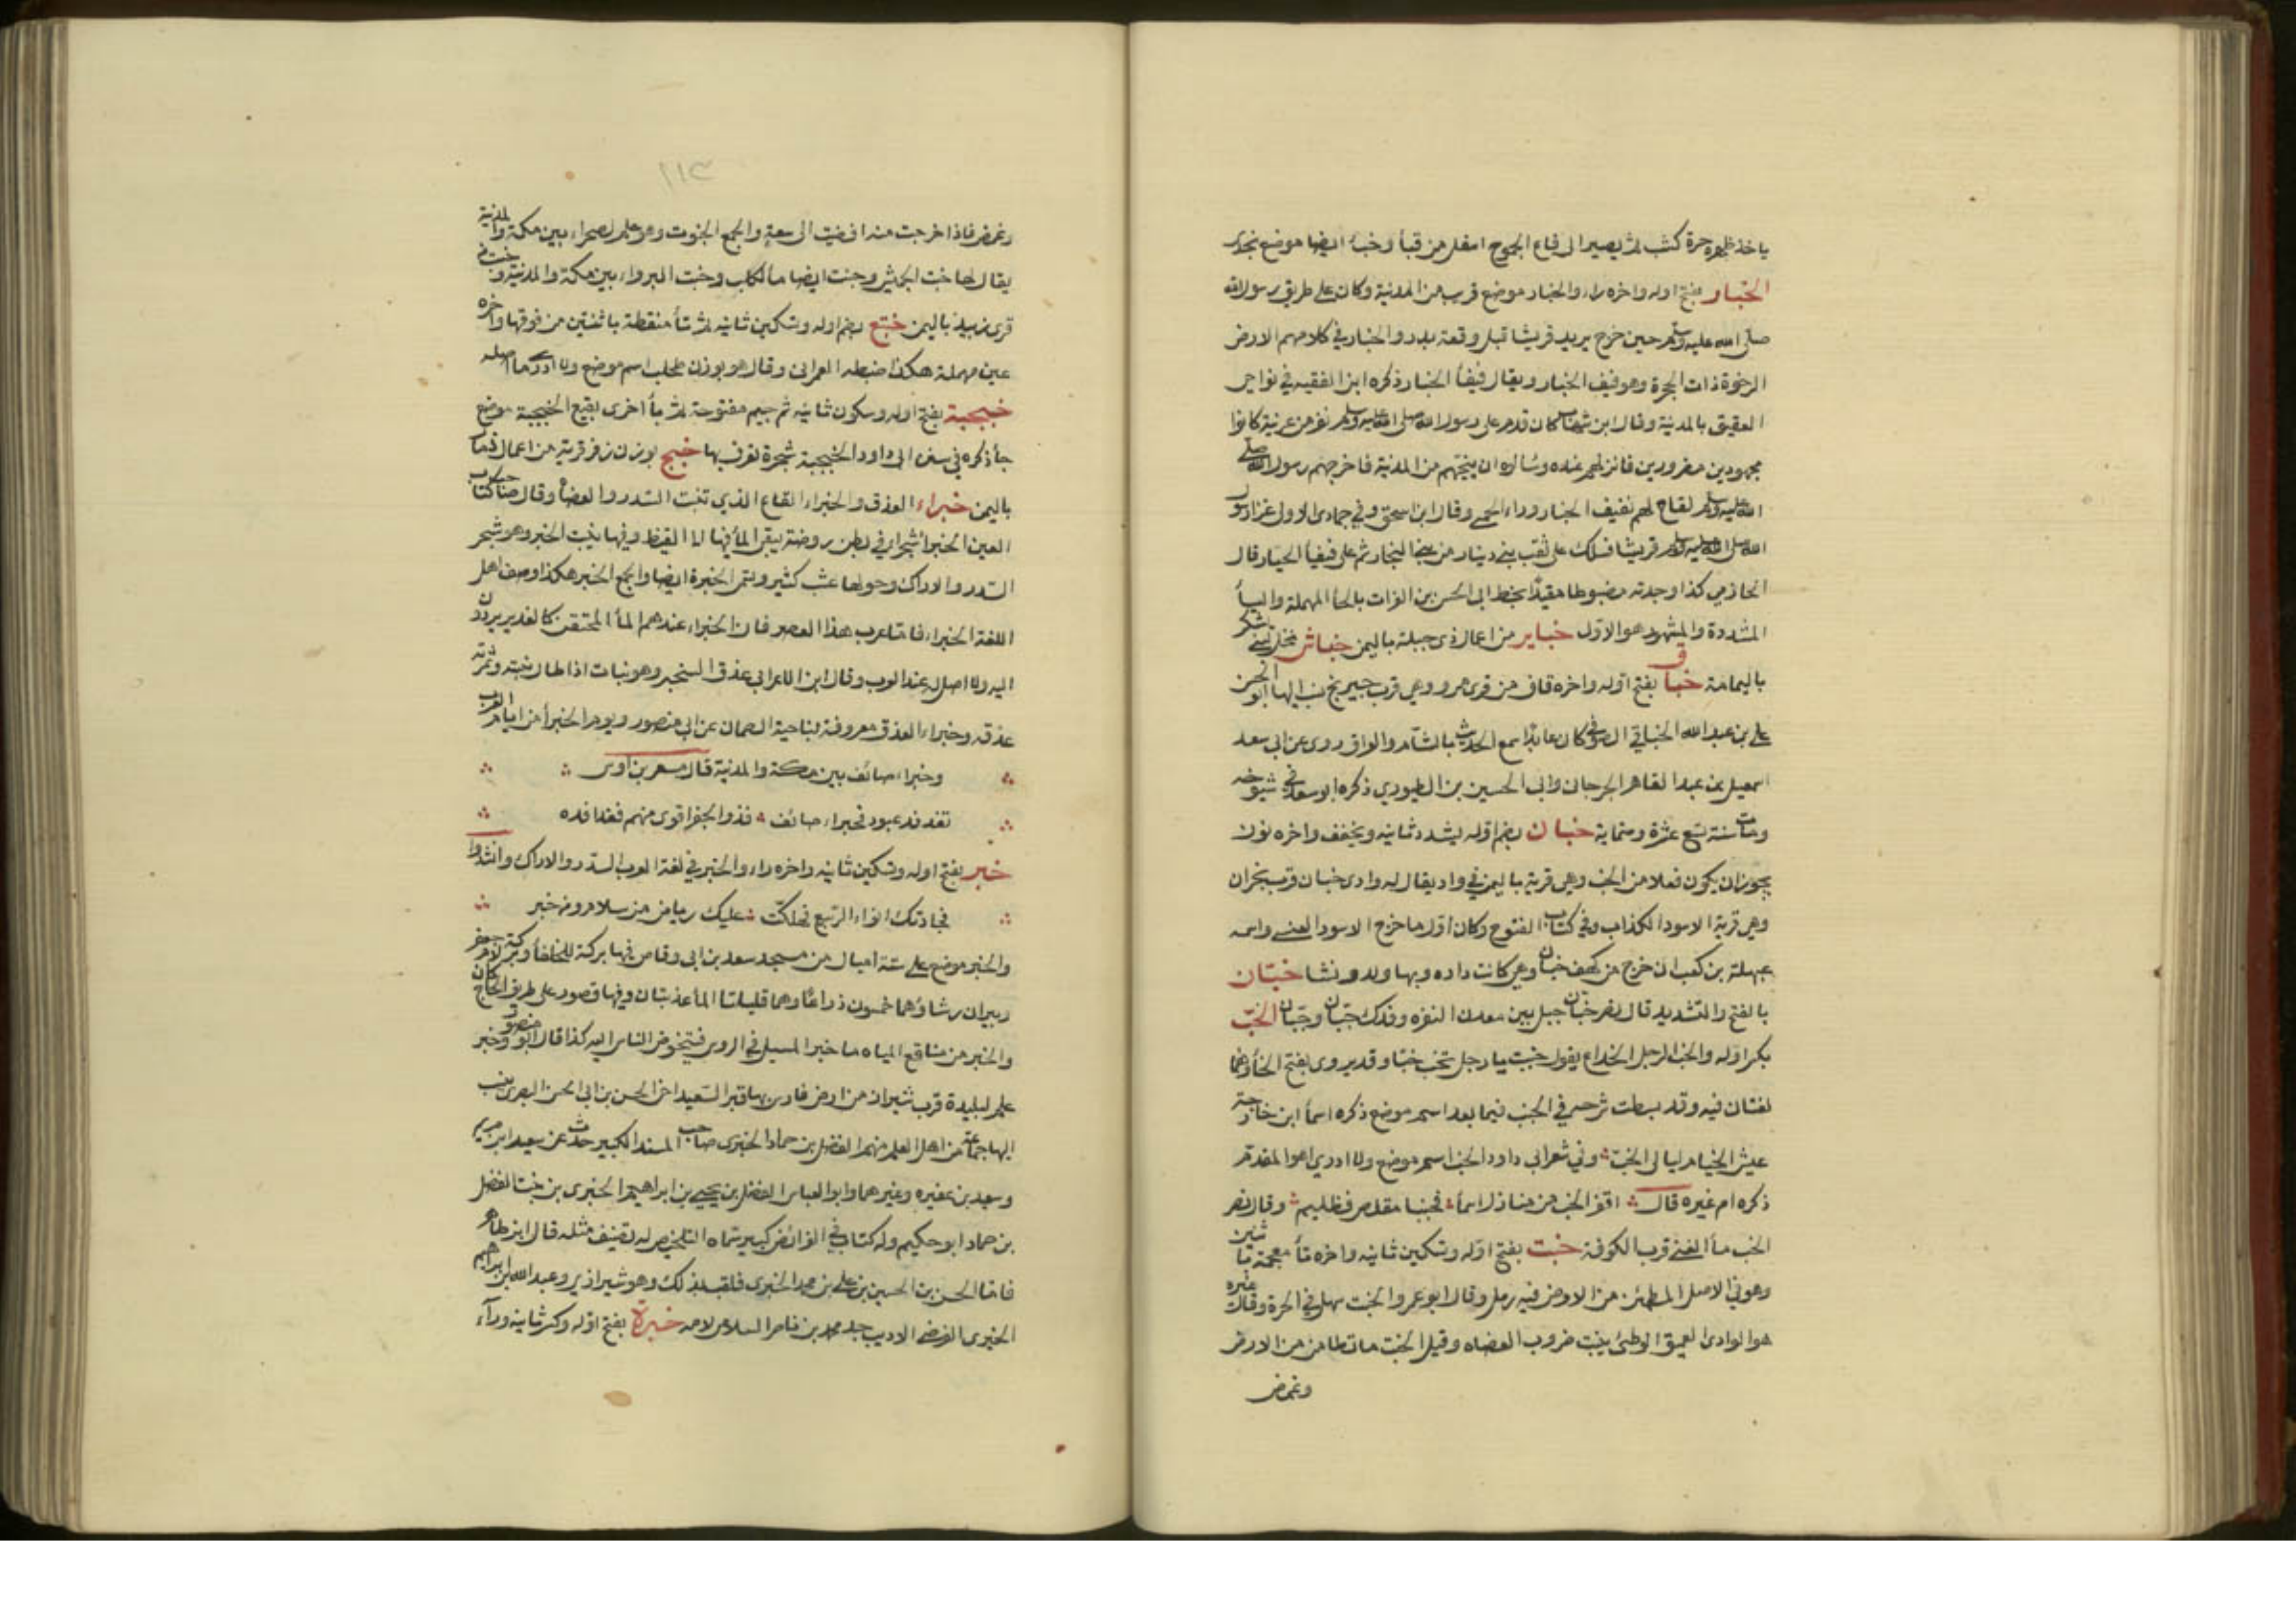 ياخذ ظهره حرة كشب ثم يصير الى قاع الجموح اسفل من قبا وخبا ايضا موضع نجدى
الخبار بفتح اوله واخره راء والخبار موضع قريب من المدينة وكان على طريق رسول الله
صلى الله عليه وسلم حين خرج يريد قريشا قبل وقعة بدر والخبار في كلامهم الارض
الرخوة ذات الجحرة وهو فيف الخبار ويقال فيفا الخبار ذكره ابن الفقيه في نواحي
العقيق بالمدينة وقال ابن شهاب كان قدم على رسول الله صلى الله عليه وسلم نفر من عرينة كانوا
مجهودين مضرورين فانزلهم عنده وسالوه ان ينجيهم من المدينة فاخرجهم رسول الله صلى
الله عليه وسلم لقاح لهم بفيف الخبار وراء الحمى وقال ابن اسحق وفي جمادى الاول غزا رسول
الله صلى الله عليه وسلم قريشا فسلك على نقب بني دينار من بني النجار ثم على فيفا الخبار قال
الحازمي كذا وجدته مضبوطا مقيدا بخط ابى الحسن بن الفرات بالحا المهملة واليا
المشددة والمشهور هو الاول خباير من اعمال ذى جبلة باليمن خباش نخل لبني يشكر
باليمامة خباق بفتح اوله واخره قاف من قرى مرو وهي قرب جيرنج ينسب اليها ابو الحسن
على بن عبد الله الخباقي الصوفي كان عابدا سمع الحديث بالشام والعراق روى عن ابى سعد
اسمعيل بن عبد القاهر الجرجاني وابى الحسين بن الطيورى ذكره ابو سعد في شيوخه
ومات سنة تسع عشرة وخمسماية خبان بضم اوله يشدد ثانيه ويخفف واخره نون
يجوز ان يكون فعلا من الخب وهي قرية باليمن في واد يقال له وادى خبان قرب نجران
وهي قرية الاسود الكذاب وفي كتاب الفتوح وكان اول ما خرج الاسود العنسي واسمه
عبهلة بن كعب ان خرج من كهف خبان وهي كانت داره وبها ولد ونشا خبان
بالفتح والتشديد قال نصر خبان جبل بين معدن النقره وفدك خبان وخبان الخب
بكسر اوله والخب الرجل الخداع يقول خببت يا رجل تخب خبا وقد يروى بفتح الخا وهما
لغتان فيه وقد بسطت شرحه في الخب فيما بعد اسم موضع ذكره اسما ابن خارجة
عيش الخيام ليالى الخب وفي شعر ابى داود الخب اسم موضع ولا ادري اهو المقدم
ذكره ام غيره قال اقفر الخب من منازل اسما فجنبا مقلص فظليم وقال نصر
الخب ما لغني قرب الكوفة خبت بفتح اوله وتسكين ثانيه واخره تا معجمة باثنتين
وهو في الاصل المطمئن من الارض فيه رمل وقال ابو عمرو الخبت سهل في الحرة وقال غيره
هو الوادى العميق الوطئ ينبت ضروب العضاه وقيل الخبت ما تطامن من الارض
وغمض
١١٣
وغمض فاذا خرجت منه افضيت الى سعة والجمع الخبوت وهو علم لصحراء بين مكة والمدينة
يقال لها خبت الجميش وخبت ايضا ما لكلب وخبت البزواء بين مكة والمدينة وخبت من
قرى زبيد باليمن ختع بضم اوله وتسكين ثانيه ثم تا منقطة باثنتين من فوقها واخره
عين مهملة هكذا ضبطه العمرانى وقال هو بوزن طحلب اسم موضع ولا ادرى ما اصله
خبجبة بفتح اوله وسكون ثانيه ثم جيم مفتوحة ثم با اخرى بقيع الخبجبة موضع
جا ذكره في سنن ابى داود الخبجبة شجرة تعرف بها خبج بوزن زفر قرية من اعمال ذمار
باليمن خبراء العذق والخبراء القاع الذي تنبت السدر والعضاه وقال صاحب كتاب
العين الخبراء شجراء في بطن روضة يبقى الما فيها الى القيظ وفيها ينبت الخبر وهو شجر
السدر والاراك وحولها عشب كثير وتسمى الخبرة ايضا والجمع الخبر هكذا وصف اهل
اللغة الخبراء فاما عرب هذا العصر فان الخبراء عندهم الما المحتقن كالغدير يردون
اليه ولا اصل له عند العرب وقال ابن الاعرابى عذق السخبر وهو نبات اذا طال نبته وثمرته
عذقه وخبراء العذق معروفة بناحية الصمان عن ابى منصور ويوم الخبرا من ايام العرب
وخبراء صائف بين مكة والمدينة قال معن بن اوس
تفد فد عبود فخبراء صائف فذو الجفر اقوى منهم ففدافده
خبر بفتح اوله وتسكين ثانيه واخره راء والخبر في لغة العرب السدر والاراك وانشدوا
فجادتك انواء الربيع تهللت عليك رياض من سلام ومن خبر
والخبر موضع على ستة اميال من مسجد سعد بن ابى وقاص فيها بركة للخلفا وبركة لام جعفر
وبيران رشاؤهما خمسون ذراعا وهما قليلتا الما عذبتان وفيها قصور على طريق الحاج كان
والخبر من مناقع المياه ما خبر المسيل في الروس فتخوض الناس اليه كذا قال ابو منصور وخبر
علم لبليدة قرب شيراز من ارض فارس بها قبر السعيد اخى الحسن بن ابى الحسن البصرى ينسب
اليها جماعة من اهل العلم منهم الفضل بن حماد الخبرى صاحب المسند الكبير حدث عن سعيد ابن مريم
وسعيد بن عفيره وغيرهما وابو العباس الفضل بن يحيى بن ابراهيم الخبرى بن بنت الفضل
بن حماد ابو حكيم وله كتاب في الفرائض كبير سماه التلخيص له تصنيف مثله قال ابن طاهر
فاما الحسن بن الحسين بن على بن محمد الخبرى فلقب بذلك وهو شيرازى وعبد الله بن ابراهيم
الخبرى الفرضي الاديب جد محمد بن ناصر السلامى لامه خبرة بفتح اوله وكسر ثانيه وراء